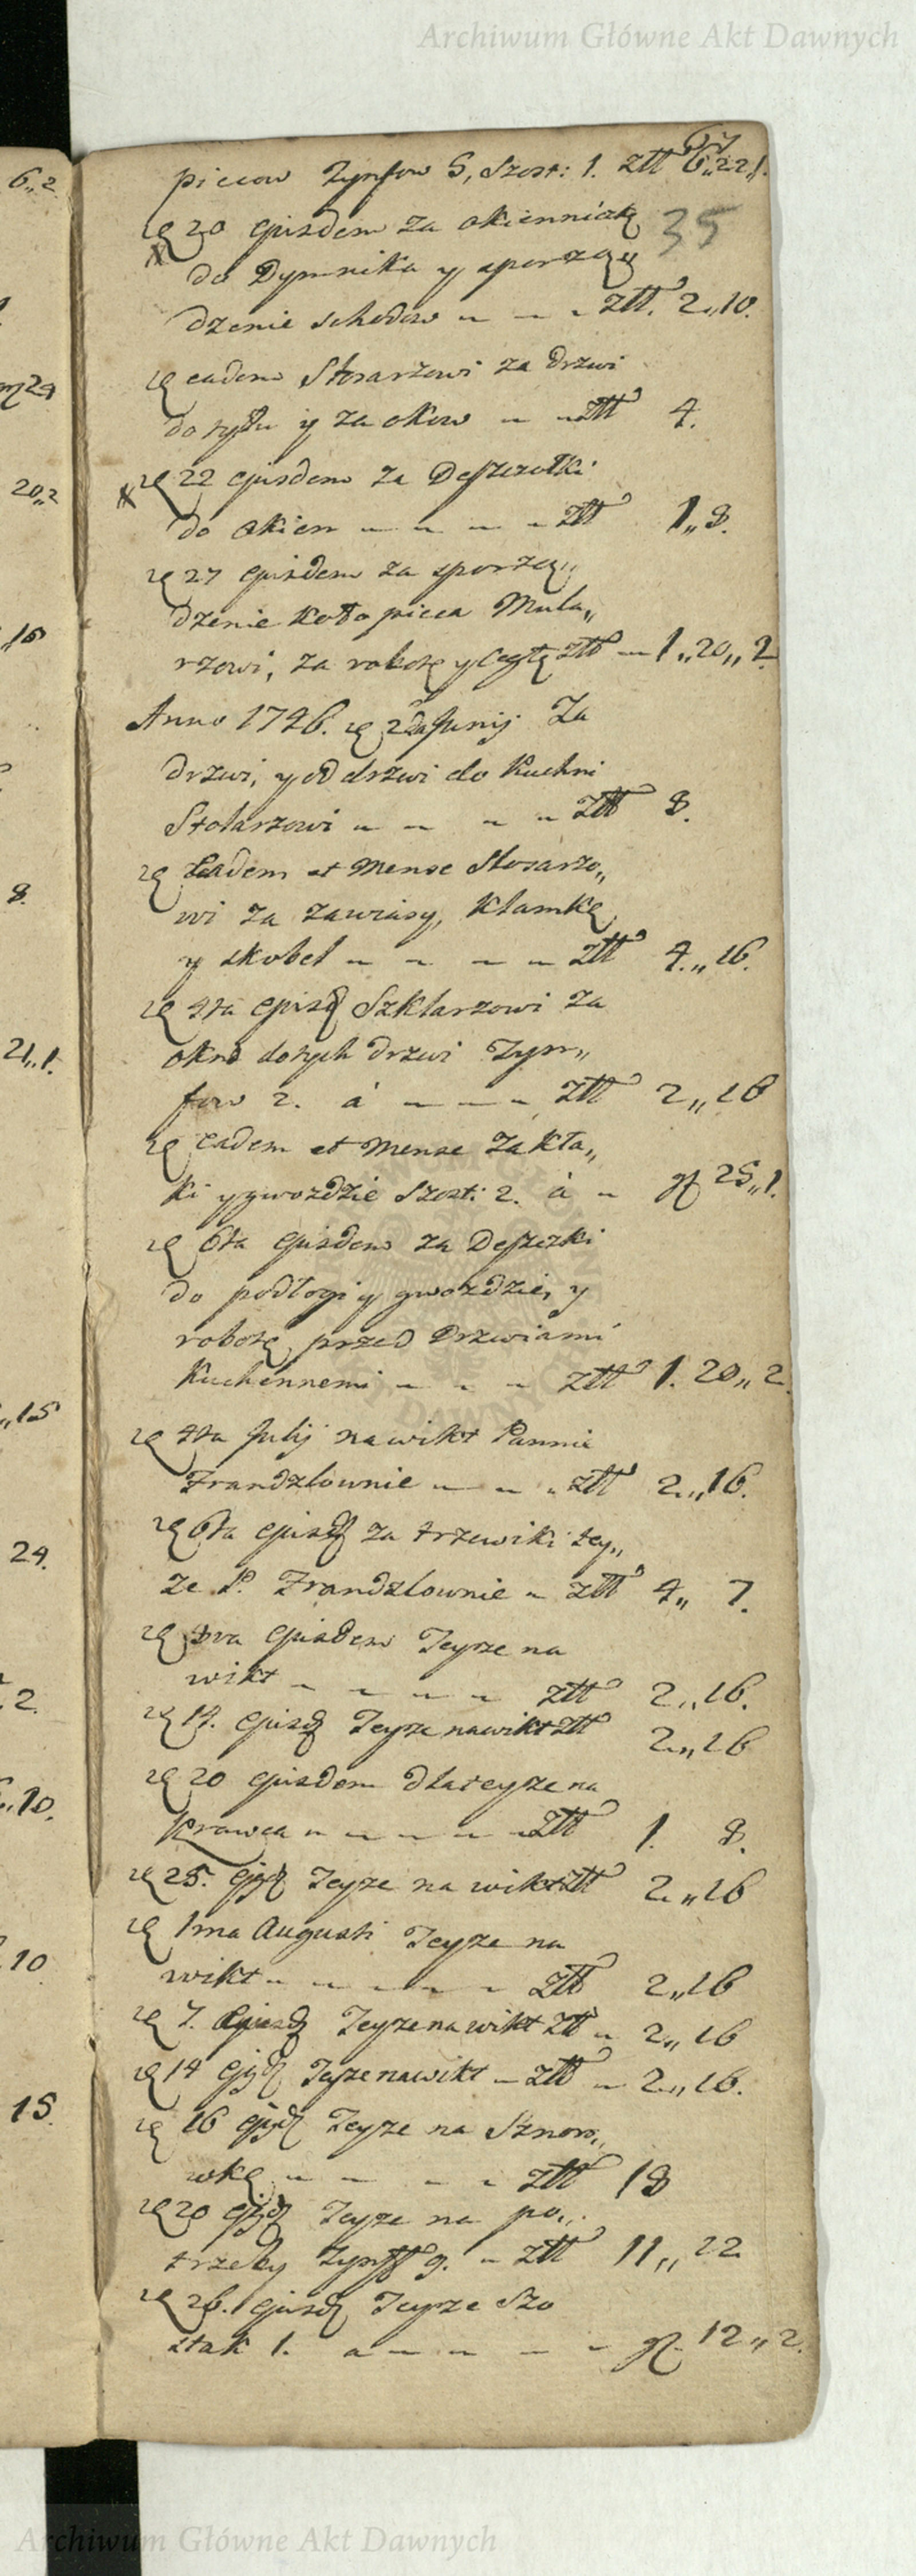 Archiwum Główne Akt Dawnych
67
piecow Tynfow 5, Szost: 1. złł 6„22„1.
35
20 ejusdem za okienniczkę
do Dymnika y sporzą„
dzenie schodow złł. 2„10.
eadem Slosarzowi za drzwi
do tyłu y za okow złł 4.
22 ejusdem za Deszczułki
do okien złł 1„8.
27 ejusdem za sporzą„
dzenie koło pieca Mula„
rzowi, za robotę y cegłę złł 1„20„2
Anno 1746. 2da Junij Za
drzwi, y od drzwi do Kuchni
Stolarzowi złł 8.
Eadem et Mense Slosarzo„
wi za zawiasy, klamkę
y skobel złł 4.„16.
4ta ejusd Szklarzowi za
okno do tych drzwi Tym„
fow 2. á złł 2„16
Eadem et Mense za kła„
ki y gwozdzie Szost: 2. á gr 25„1.
6ta Ejusdem za Deszczki
do podłogi y gwozdzie, y
robotę przed Drzwiami
Kuchennemi złł 1. 20„2.
4ta Julij na wikt Pannie
Frandzlownie złł 2„16.
6ta ejusd za trzewiki tey„
ze P. Frandzlownie złł 4„ 7.
ejusdem Teyze na
wikt złł 2„16.
14. ejusd Teyze na wikt złł 2„16
20 ejusdem dla teyze na
Krawca złł 1. 8.
25. ejusd Teyze na wikt złł 2„16
1ma Augusti Teyze na
wikt złł 2„16
7. Ejusd Teyze na wikt złł 2„16
14 ejusd Teyze na wikt złł 2„16.
16 ejusd Teyze na Sznoro„
wkę złł 18
20 ejusd Teyze na po„
trzeby Tynff 9. złł 11„22
26. ejusd Teyze Szo
stak 1. a gr 12„2.
Archiwum Główne Akt Dawnych